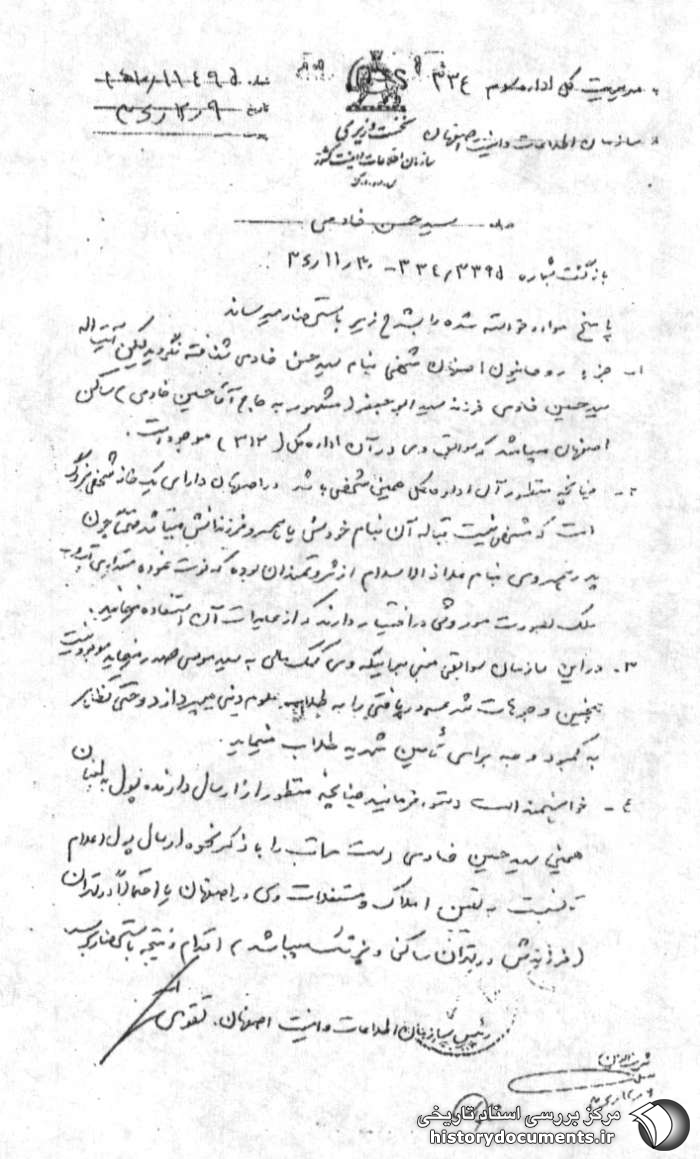 به مدیریت کل اداره سوم ۳۳۴
شماره
از سازمان اطلاعات و امنیت اصفهان
تاریخ ۳۶/۲/۹
نخست وزیری
سازمان اطلاعات و امنیت کشور
س.ا.و.ا.ک
درباره سید حسن خادمی
بازگشت بشماره ۳۳۴/۳۳۹۵ - ۳۶/۱۱/۳۰
پاسخ موارد خواسته شده را بشرح زیر باستحضار میرساند
۱- جزء روحانیون اصفهان شخصی بنام سید حسن خادمی شناخته نگردید لیکن آیت اله
سید حسین خادمی فرزند سید ابوجعفر (مشهور به حاج آقا حسین خادمی) ساکن
اصفهان میباشد که سوابق وی در آن اداره کل (۳۱۲) موجود است.
۲- چنانچه منظور آن اداره کل همین شخص باشد در اصفهان دارای یک خانه شخصی بزرگ
است که مشخص نیست قباله آن بنام خودش یا همسر و فرزندانش میباشد ضمناً چون
پدر همسر وی بنام ملاذالاسلام از ثروتمندان بوده که فوت نموده مقداری
ملک بصورت موروثی در اختیار دارند که از عایدات آن استفاده مینمایند.
۳- در این سازمان سوابقی مبنی بر اینکه وی کمک مالی به سید موسی صدر مینماید موجود نیست
همچنین وجوهات شرعیه دریافتی را به طلاب علوم دینی میپردازد و حتی تظاهر
به کمبود وجه برای تأمین شهریه طلاب مینماید.
۴- خواهشمند است دستور فرمائید چنانچه منظور از ارسال دارنده پول به لبنان
همین سید حسین خادمی است مراتب را با ذکر نحوه ارسال پول اعلام
تا نسبت به تعیین املاک و مستغلات وی در اصفهان یا احتمالاً در تهران
(فرزندش در تهران ساکن و پزشک میباشد) اقدام و نتیجه باستحضار برسد
رئیس سازمان اطلاعات و امنیت اصفهان. تقوی
مرکز بررسی اسناد تاریخی
historydocuments.ir